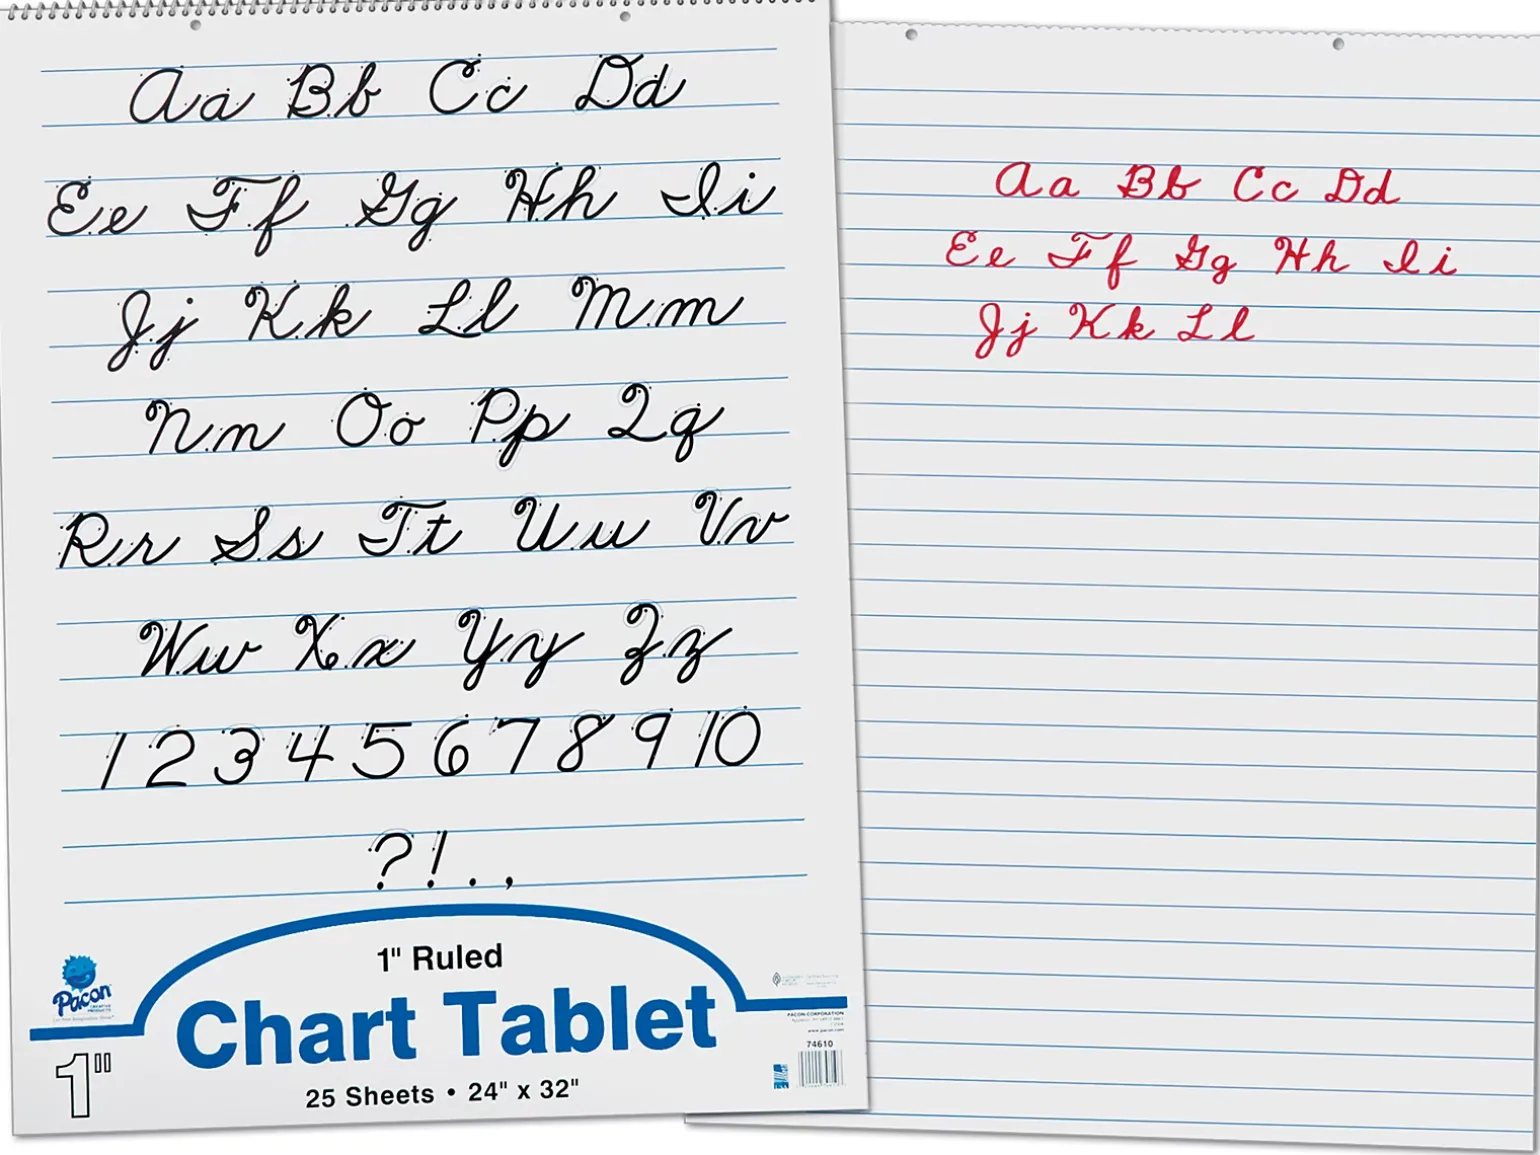 Aa Bb Cc Dd
Ee Ff Gg Hh Ii
Jj Kk Ll Mm
Nn Oo Pp Qq
Rr Ss Tt Uu Vv
Ww Xx Yy Zz
1 2 3 4 5 6 7 8 9 10
? ! . ,
1" Ruled
Pacon
CREATIVE
PRODUCTS
Chart Tablet
1"
25 Sheets • 24" x 32"
PACON CORPORATION
www.pacon.com
74610
Aa Bb Cc Dd
Ee Ff Gg Hh Ii
Jj Kk Ll